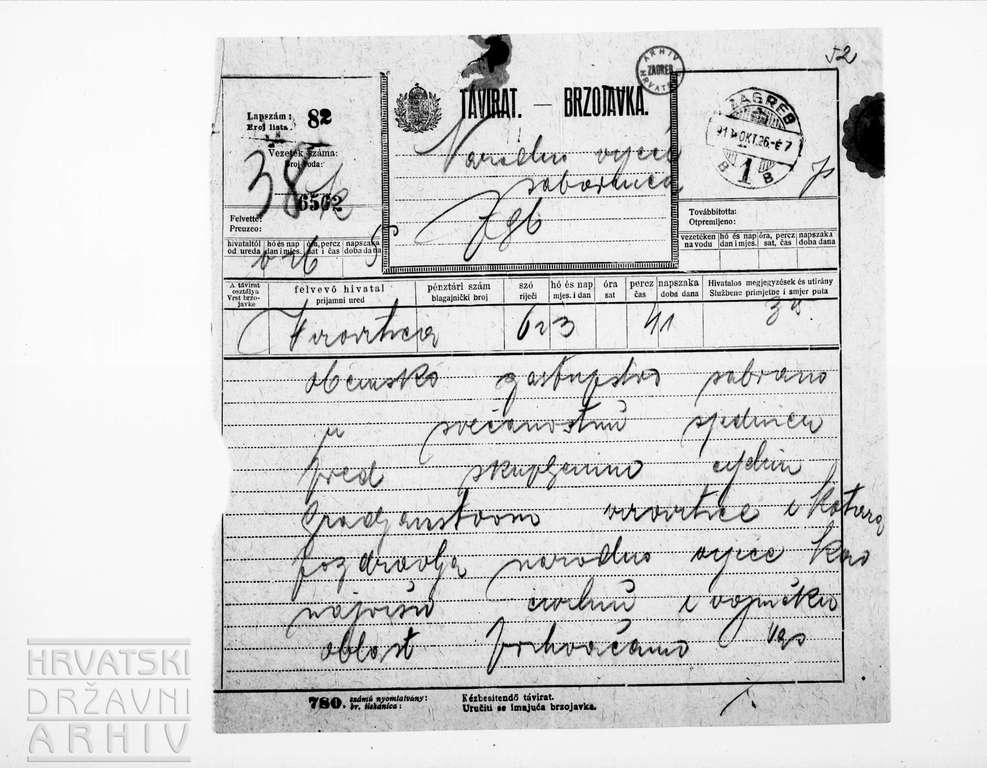 52
ARHIV HRVATSKE
ZAGREB
TÁVIRAT. — BRZOJAVKA.
Lapszám:
Broj lista: 82
Vezeték száma:
Broj voda:
38
6562
Felvette:
Preuzeo:
hivataltól hó és nap óra, percz napszaka
od ureda dan i mjes. sat i čas doba dana
Narodno vijeće
sabornica
Zgb
ZAGREB
OKT.26
B 1 B
Továbbította:
Otpremljeno:
vezetéken hó és nap óra, percz napszaka
na vodu dan i mjes. sat, čas doba dana
A távirat osztálya felvevő hivatal pénztári szám szó hó és nap óra percz napszaka Hivatalos megjegyzések és utirány
Vrst brzojavke prijamni ured blagajnički broj riječi mjes. i dan sat čas doba dana Službene primjetne i smjer puta
Virovitica 623 41
občinsko zastupstvo sabrano
u svečanostnu sjednicu
pred skupljenim cijelim
gradjanstvom virovitice i kotara
pozdravlja narodno vijeće kao
najvišu civilnu i vojničku
oblast prihvaćamo vas
780. számú nyomtatvány:
br. tiskanica:
Kézbesitendő távirat.
Uručiti se imajuća brzojavka.
HRVATSKI
DRŽAVNI
ARHIV